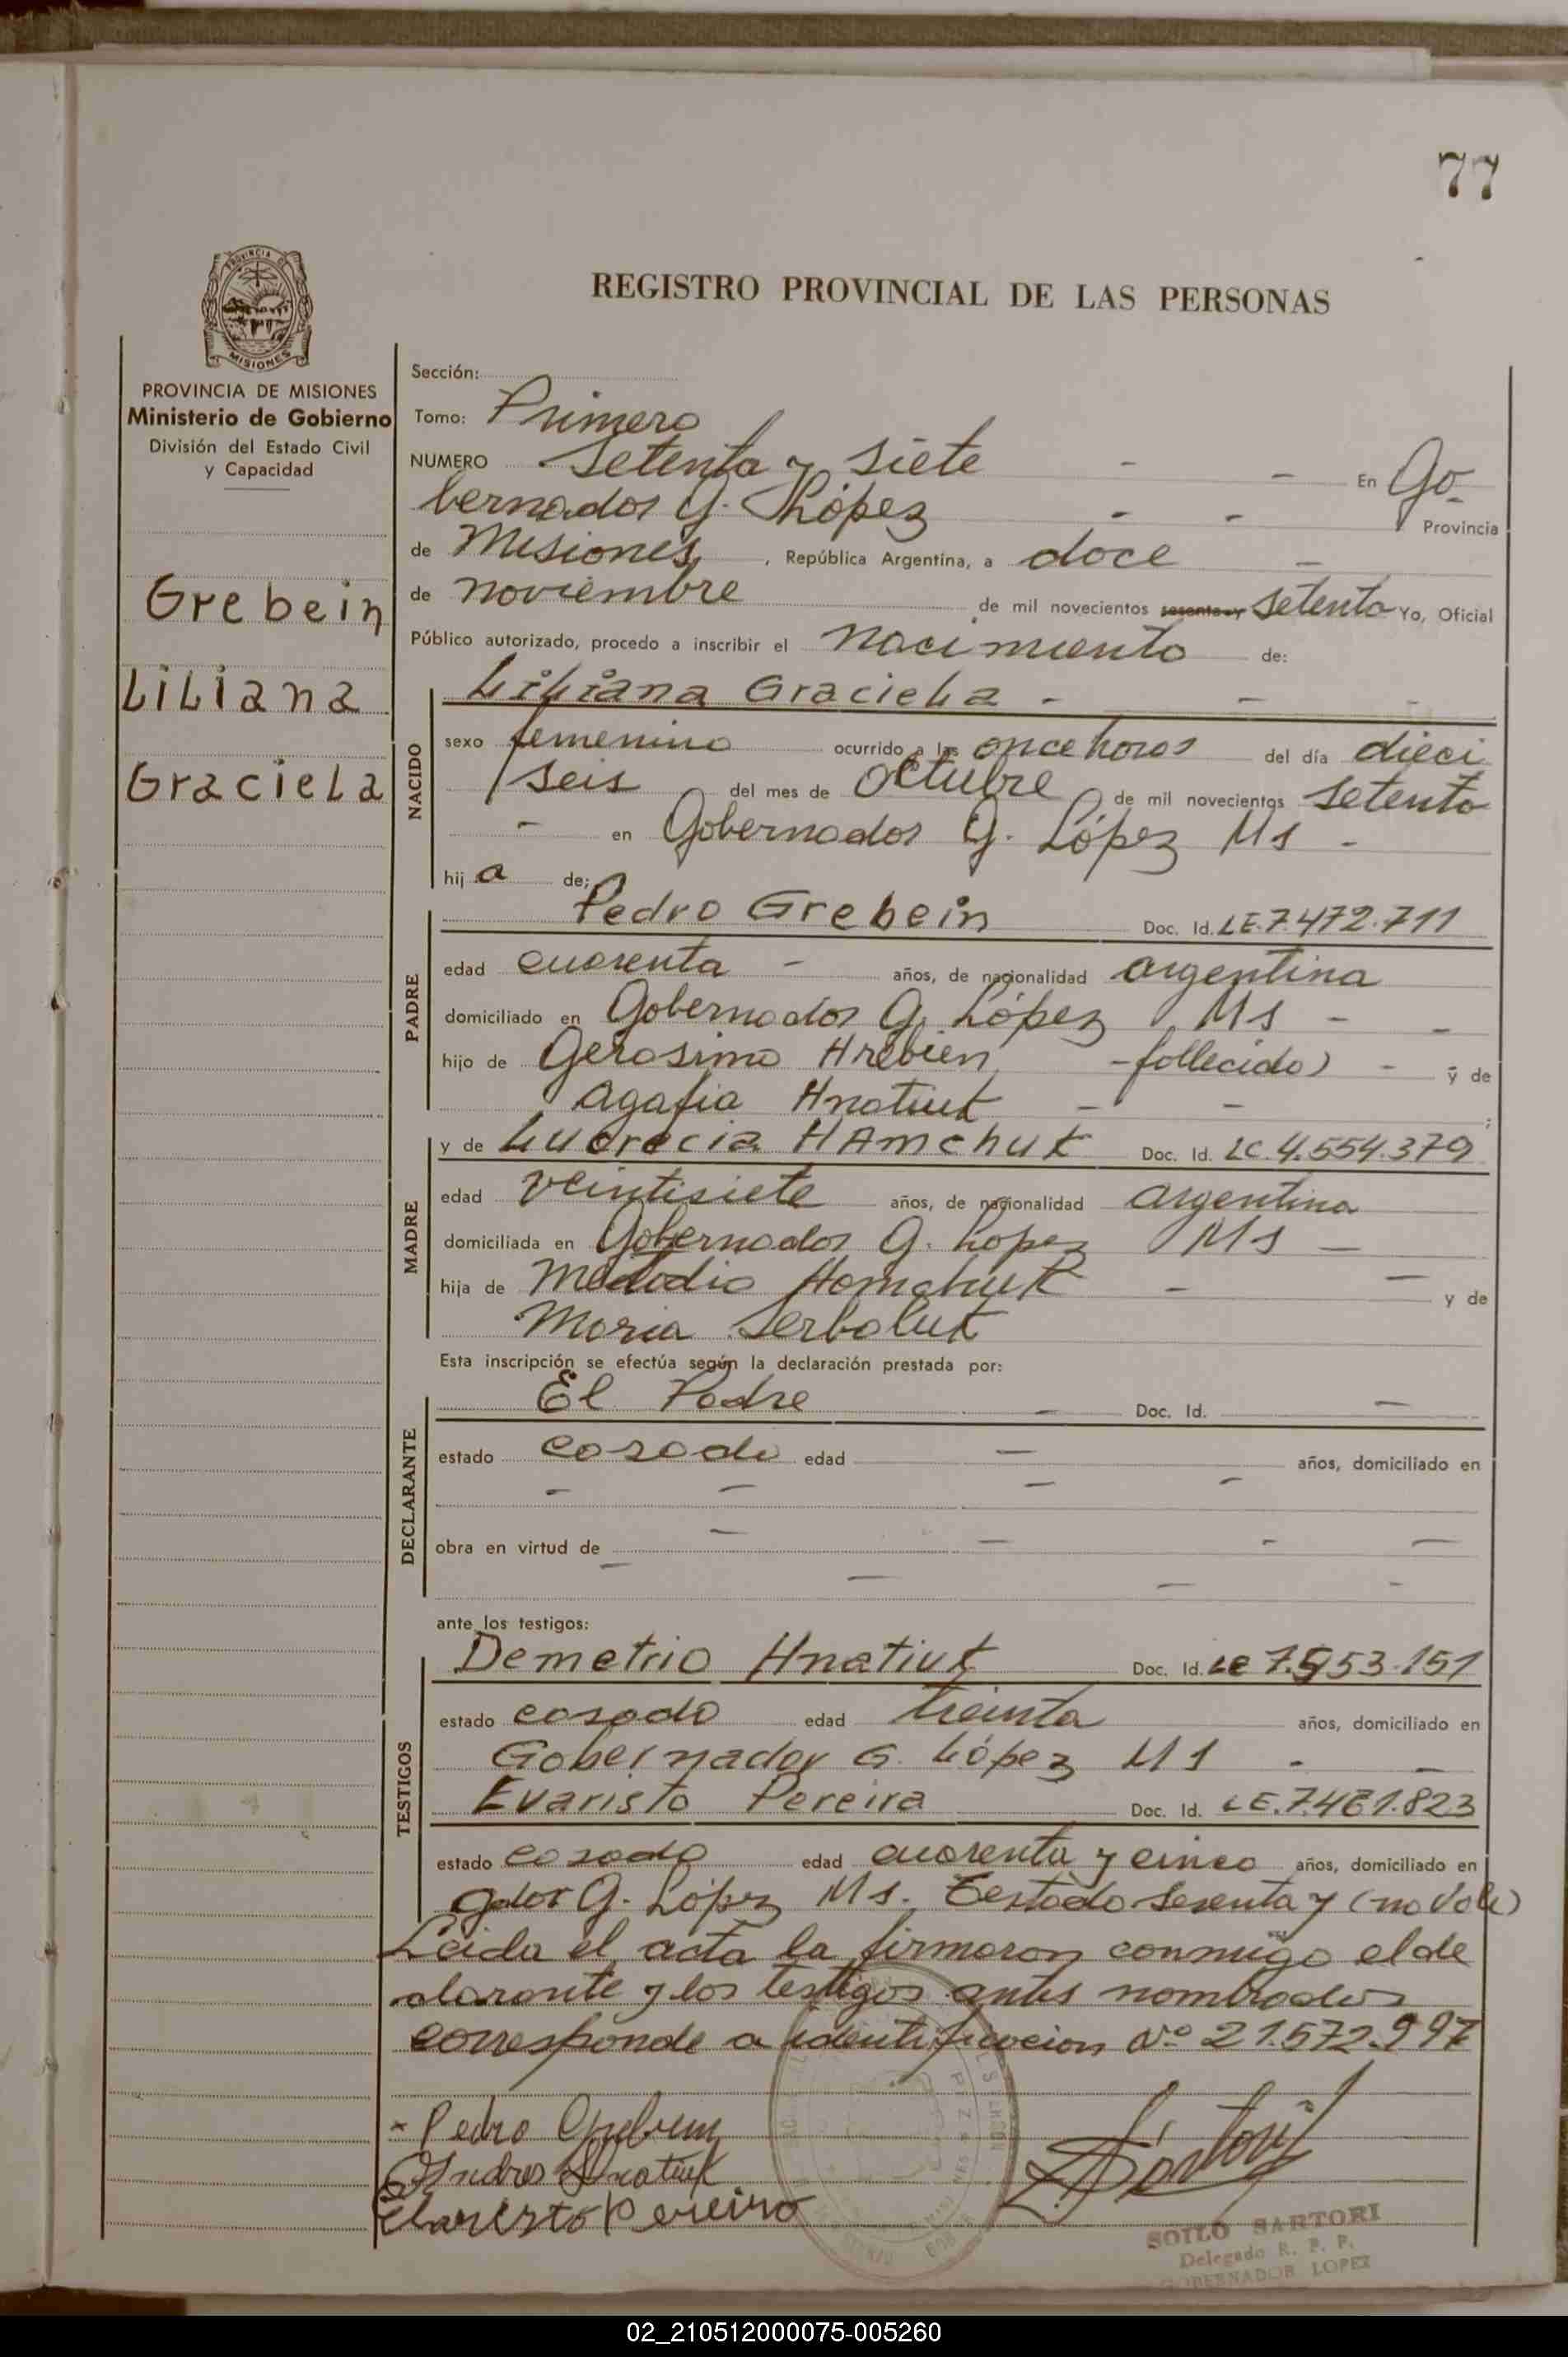 77
REGISTRO PROVINCIAL DE LAS PERSONAS
PROVINCIA DE
MISIONES
PROVINCIA DE MISIONES
Ministerio de Gobierno
División del Estado Civil
y Capacidad
Grebein
Liliana
Graciela
Sección:
Tomo: Primero
NUMERO Setenta y siete - - En Go-
bernador G. López - - Provincia
de Misiones, República Argentina, a doce -
de noviembre de mil novecientos sesenta y setenta Yo, Oficial
Público autorizado, procedo a inscribir el nacimiento de:
NACIDO
Liliana Graciela - - -
sexo femenino ocurrido a las once horas del día dieci
seis del mes de octubre de mil novecientos setenta
- en Gobernador G. López Ms -
hij a de:
PADRE
Pedro Grebein Doc. Id. LE.7.472.711
edad cuarenta - años, de nacionalidad argentina
domiciliado en Gobernador G. López Ms - -
hijo de Gerasimo Hrebien -fallecido) - y de
Agafia Hnatiuk - - ;
MADRE
y de Lucrecia HAmchuk Doc. Id. LC.4.554.379
edad veintisiete años, de nacionalidad argentina
domiciliada en Gobernador G. Lopez Ms -
hija de Homchuk - - y de
Maria Serbaluk
Esta inscripción se efectúa según la declaración prestada por:
DECLARANTE
El Padre - Doc. Id. -
estado casado edad - años, domiciliado en
- - - -
obra en virtud de - - - -
- - - -
ante los testigos:
TESTIGOS
Demetrio Hnatiuk Doc. Id. LE 7.553.151
estado casado edad treinta años, domiciliado en
Gobernador G. López Ms - -
Evaristo Pereira Doc. Id. LE.7.461.823
estado casado edad cuarenta y cinco años, domiciliado en
Gdor G. López Ms. Testado sesenta y (no vale)
Leida el acta la firmaron conmigo el de
clarante y los testigos antes nombrados
corresponde a identificacion Nº 21.572.997
x Pedro Grebein
Hnatiuk
Evaristo Pereira
SOILO SARTORI
Delegado R. P. P.
GOBERNADOR LOPEZ
02_210512000075-005260